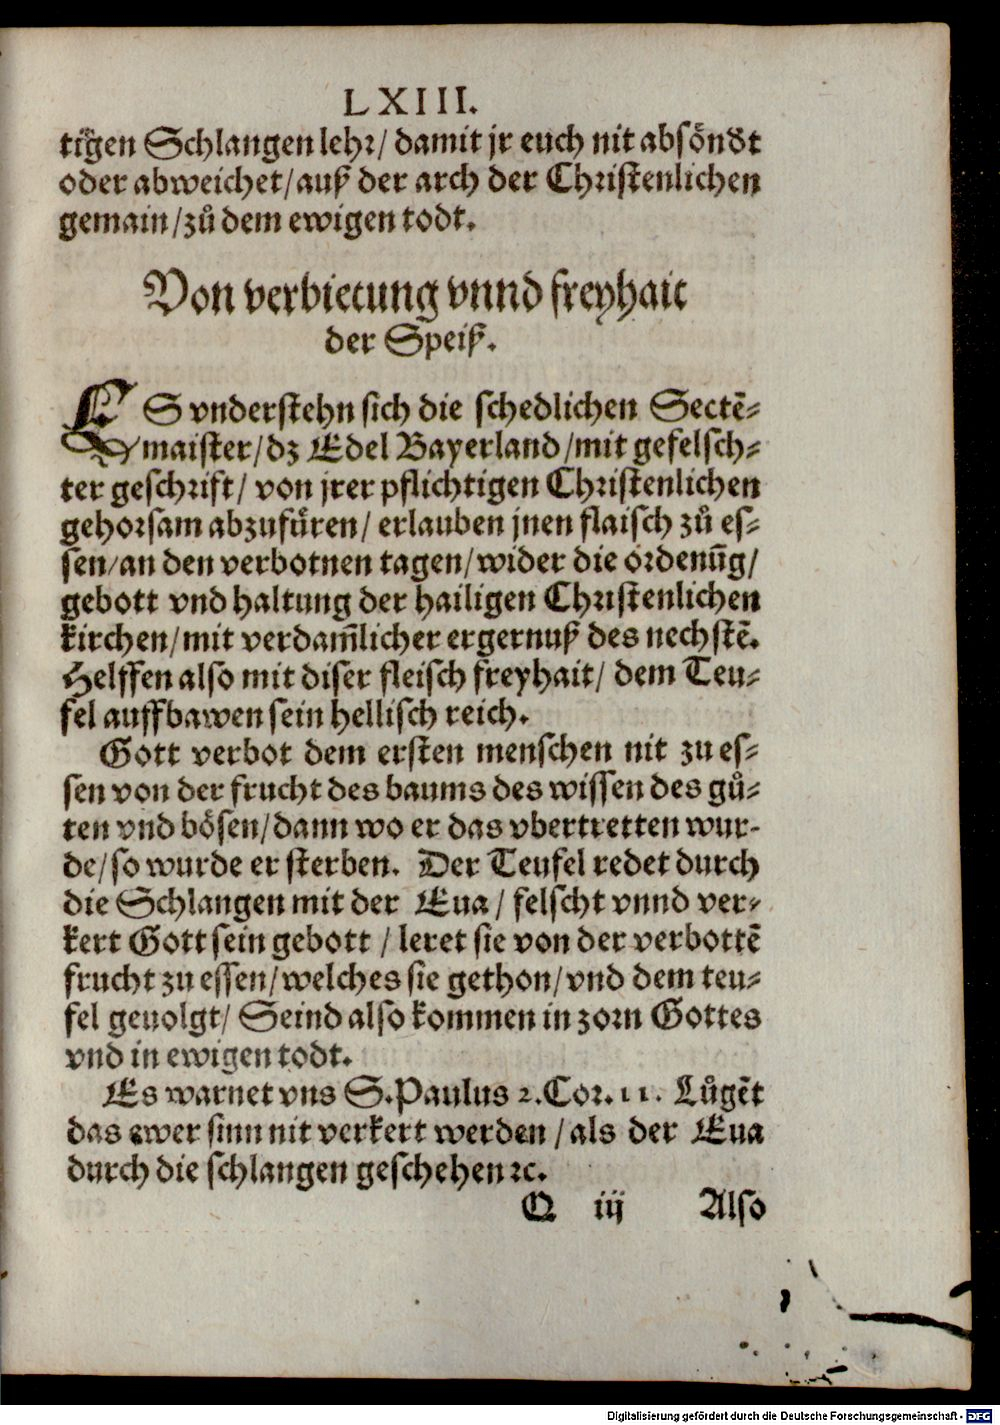 LXIII.
tigen Schlangen lehr/ damit jr euch nit absöndt
oder abweichet/auß der arch der Christenlichen
gemain/zů dem ewigen todt.
Von verbietung vnnd freyhait
der Speiß.
ES vnderstehn sich die schedlichen Sectẽ-
maister/dz Edel Bayerland/mit gefelsch-
ter geschrift/ von jrer pflichtigen Christenlichen
gehorsam abzufüren/ erlauben jnen flaisch zů es-
sen/an den verbotnen tagen/wider die ordenũg/
gebott vnd haltung der hailigen Christenlichen
kirchen/mit verdam̃licher ergernuß des nechstẽ.
Helffen also mit diser fleisch freyhait/ dem Teu-
fel auffbawen sein hellisch reich.
Gott verbot dem ersten menschen nit zu es-
sen von der frucht des baums des wissen des gů-
ten vnd bösen/dann wo er das vbertretten wur-
de/so wurde er sterben. Der Teufel redet durch
die Schlangen mit der Eua/ felscht vnnd ver-
kert Gott sein gebott/ leret sie von der verbottẽ
frucht zu essen/welches sie gethon/vnd dem teu-
fel geuolgt/ Seind also kommen in zorn Gottes
vnd in ewigen todt.
Es warnet vns S.Paulus 2.Cor.11. Lůgẽt
das ewer sinn nit verkert werden/als der Eua
durch die schlangen geschehen ꝛc.
Q iij Also
Digitalisierung gefördert durch die Deutsche Forschungsgemeinschaft - DFG